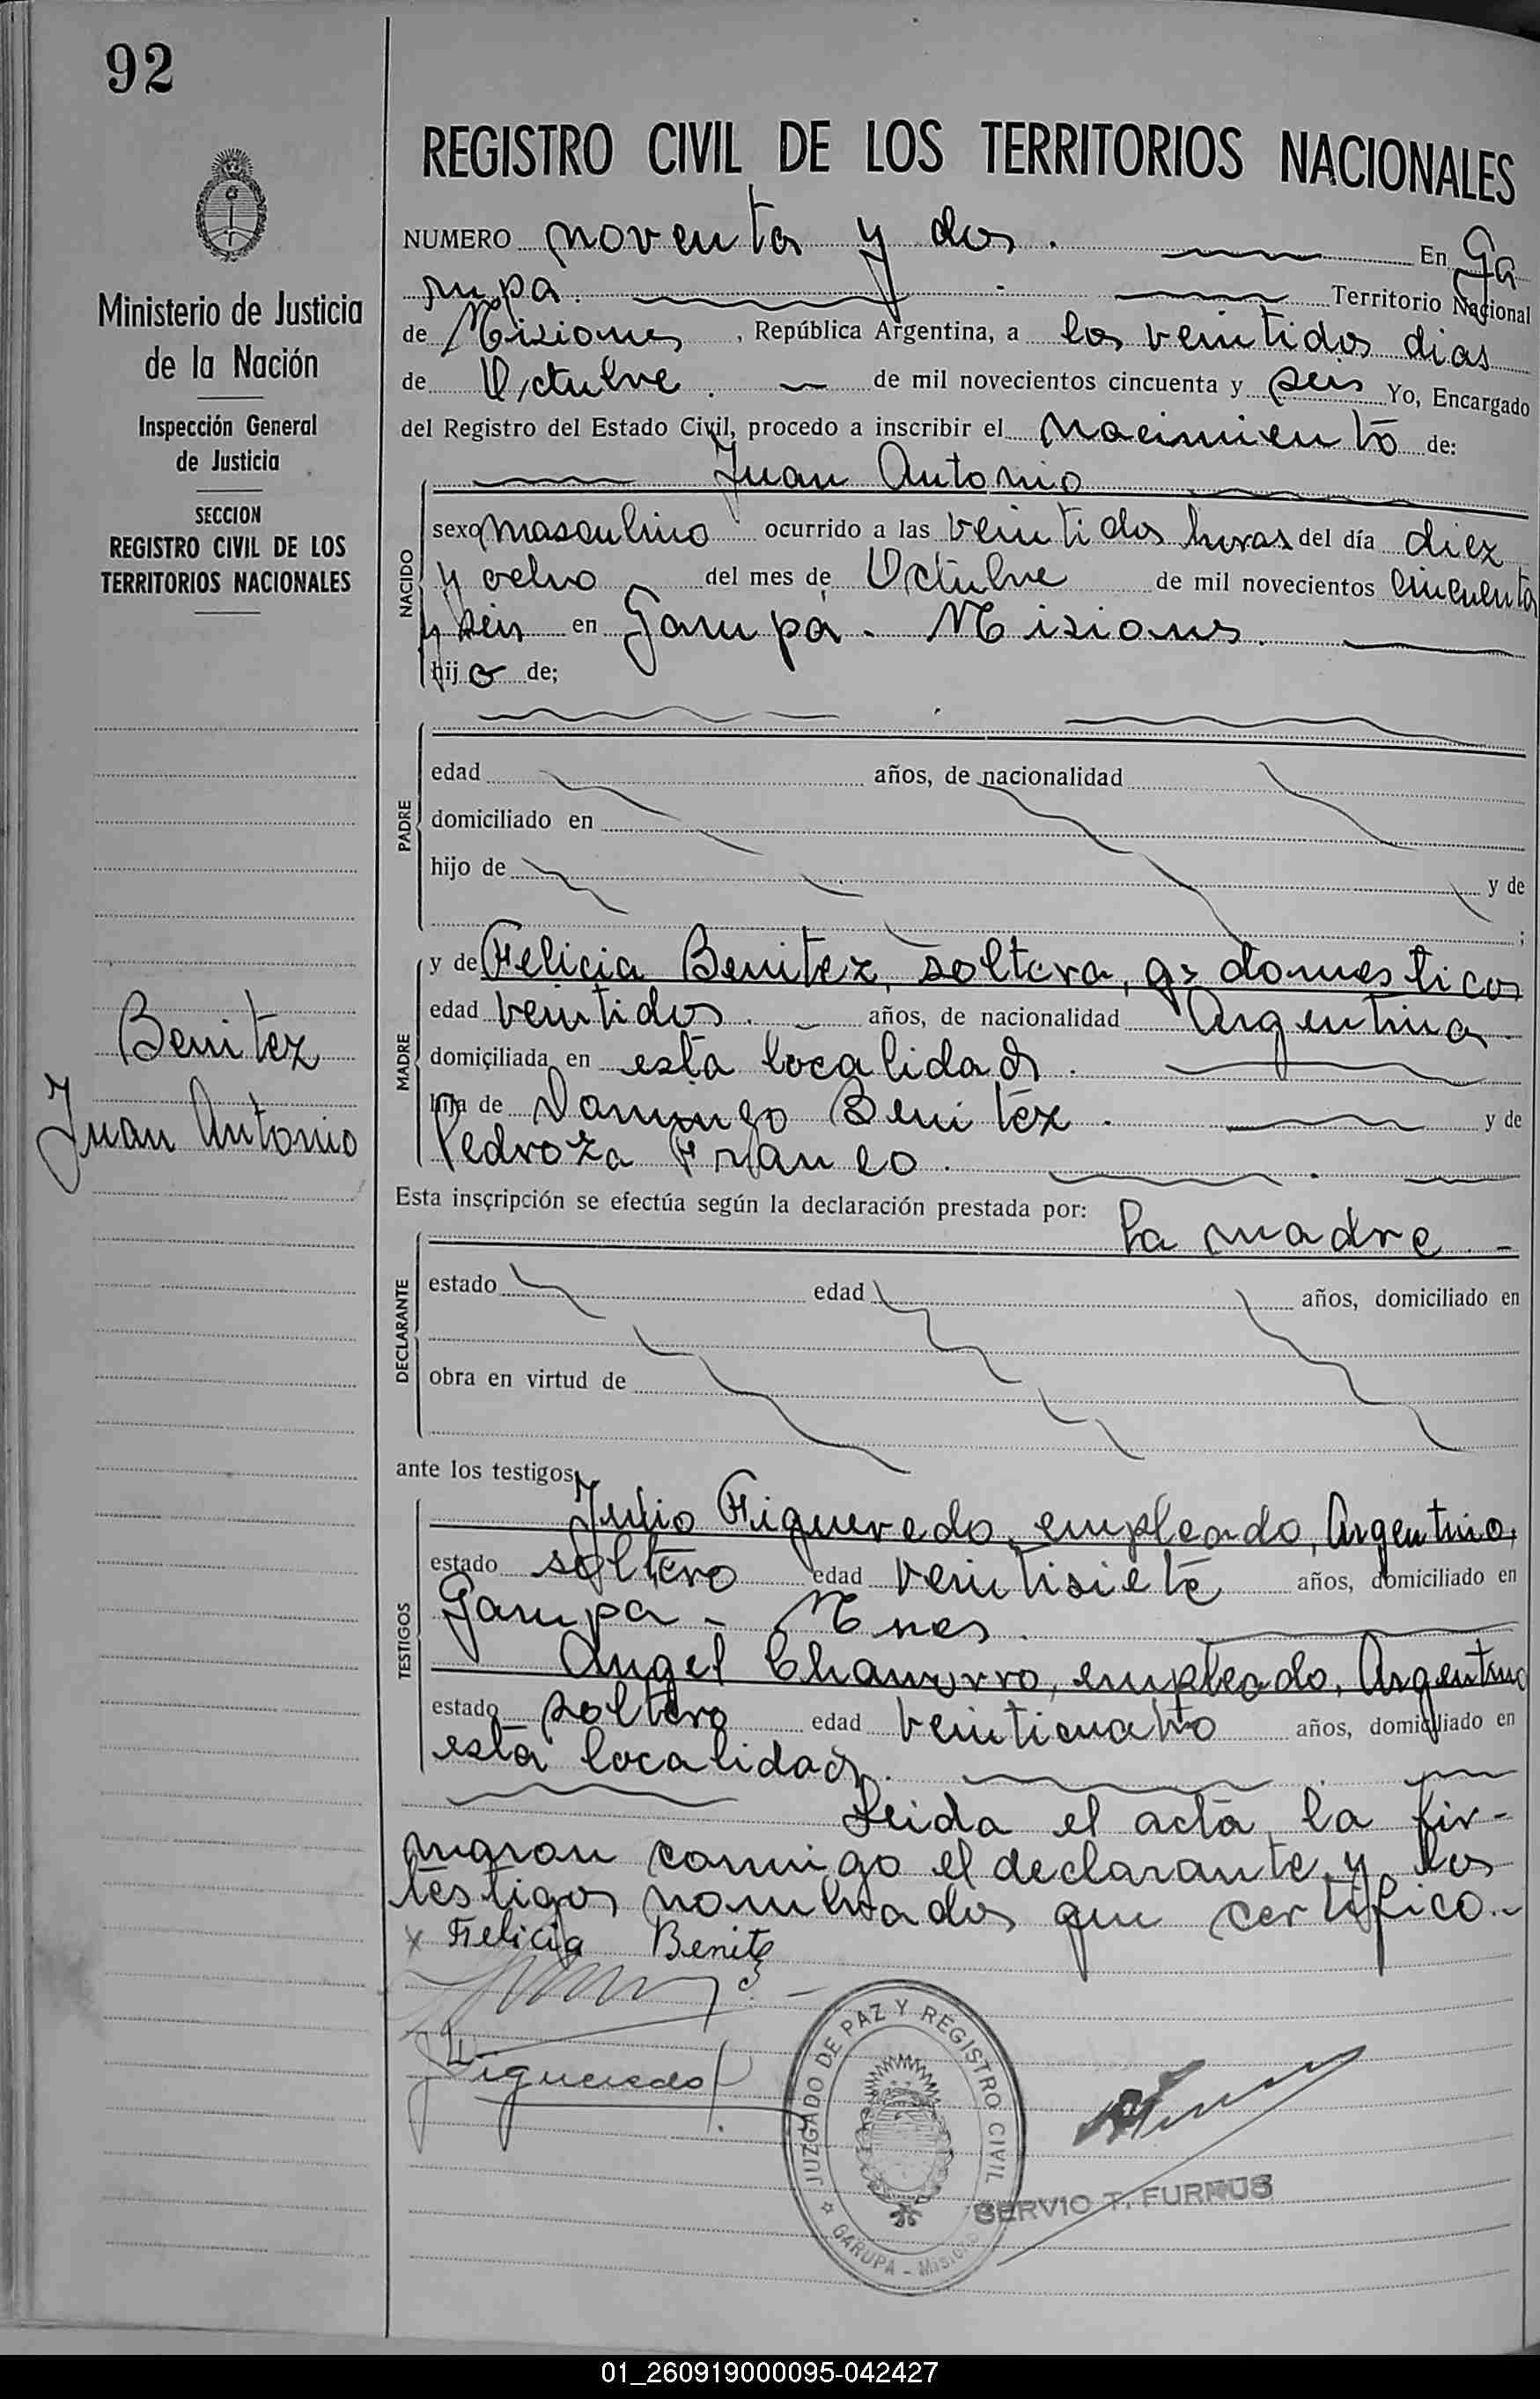 92
Ministerio de Justicia
de la Nación
Inspección General
de Justicia
SECCION
REGISTRO CIVIL DE LOS
TERRITORIOS NACIONALES
Benitez
Juan Antonio
REGISTRO CIVIL DE LOS TERRITORIOS NACIONALES
NUMERO noventa y dos. En Ga
rupa. Territorio Nacional
de Misiones, República Argentina, a los veintidos dias
de Octubre. de mil novecientos cincuenta y seis Yo, Encargado
del Registro del Estado Civil, procedo a inscribir el nacimiento de:
Juan Antonio
NACIDO
sexo masculino ocurrido a las veintidos horas del día diez
y ocho del mes de Octubre de mil novecientos cincuenta
y seis en Garupá. Misiones.
hijo de;
PADRE
edad años, de nacionalidad
domiciliado en
hijo de y de
;
MADRE
y de Felicia Benitez, soltera, qs domesticos
edad veintidos. años, de nacionalidad Argentina.
domiciliada en esta localidad.
hija de Domingo Benitez. y de
Pedroza Franco.
Esta inscripción se efectúa según la declaración prestada por: La madre.-
DECLARANTE
estado edad años, domiciliado en
obra en virtud de
ante los testigos
TESTIGOS
Julio Figueredo, empleado, Argentino,
estado soltero edad veintisiete años, domiciliado en
Garupa - Mnes.
Angel Chamorro, empleado, Argentino
estado soltero edad veinticuatro años, domiciliado en
esta localidad.
Leida el acta, la fir-
maron conmigo el declarante y los
testigos nombrados que certifico.-
x Felicia Benitez
Figueredo
JUZGADO DE PAZ Y REGISTRO CIVIL
GARUPA - Misiones
SERVIO T. FURNUS
01_260919000095-042427